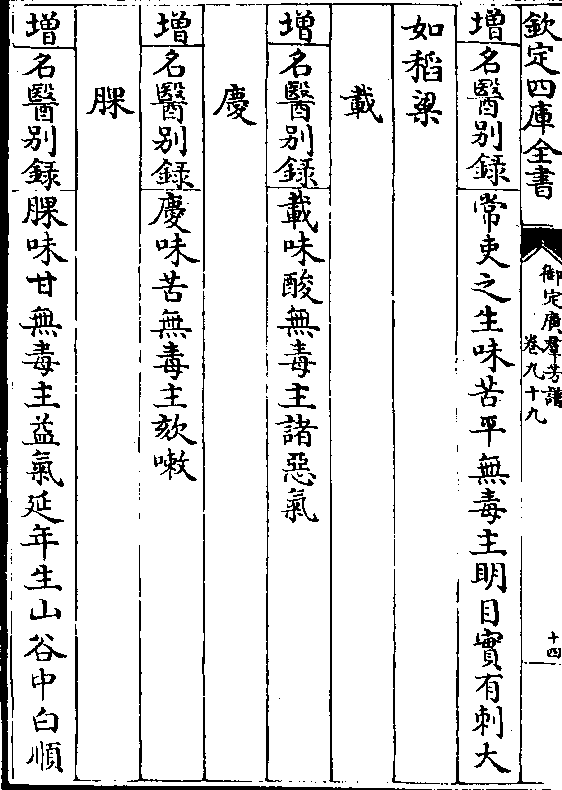 欽定四庫全書
御定廣羣芳譜
卷九十九
十四
增名醫别録常吏之生味苦平無毒主明目實有刺大
如稻粱
載
增名醫别録載味酸無毒主諸惡氣
慶
增名醫别録慶味苦無毒主欬嗽
腂
增名醫别録腂味甘無毒主益氣延年生山谷中白順